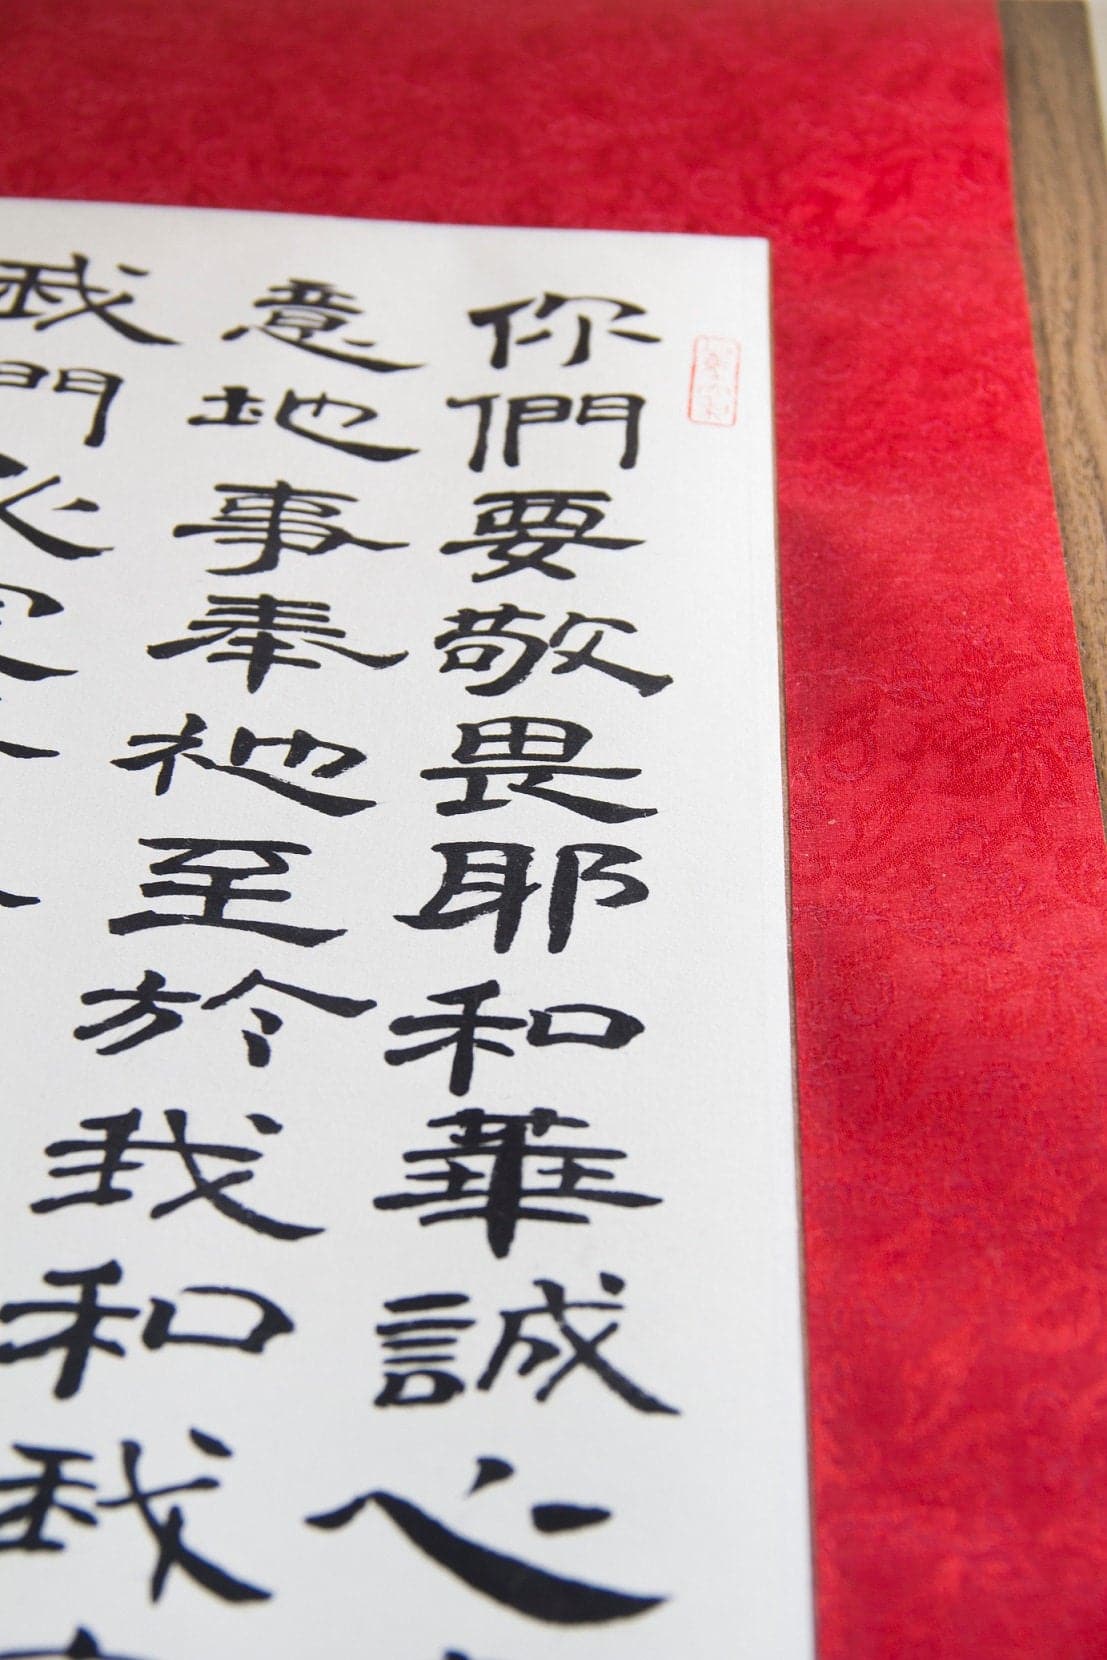 你們要敬畏耶和華誠心
意地事奉祂至於我和我
我們必